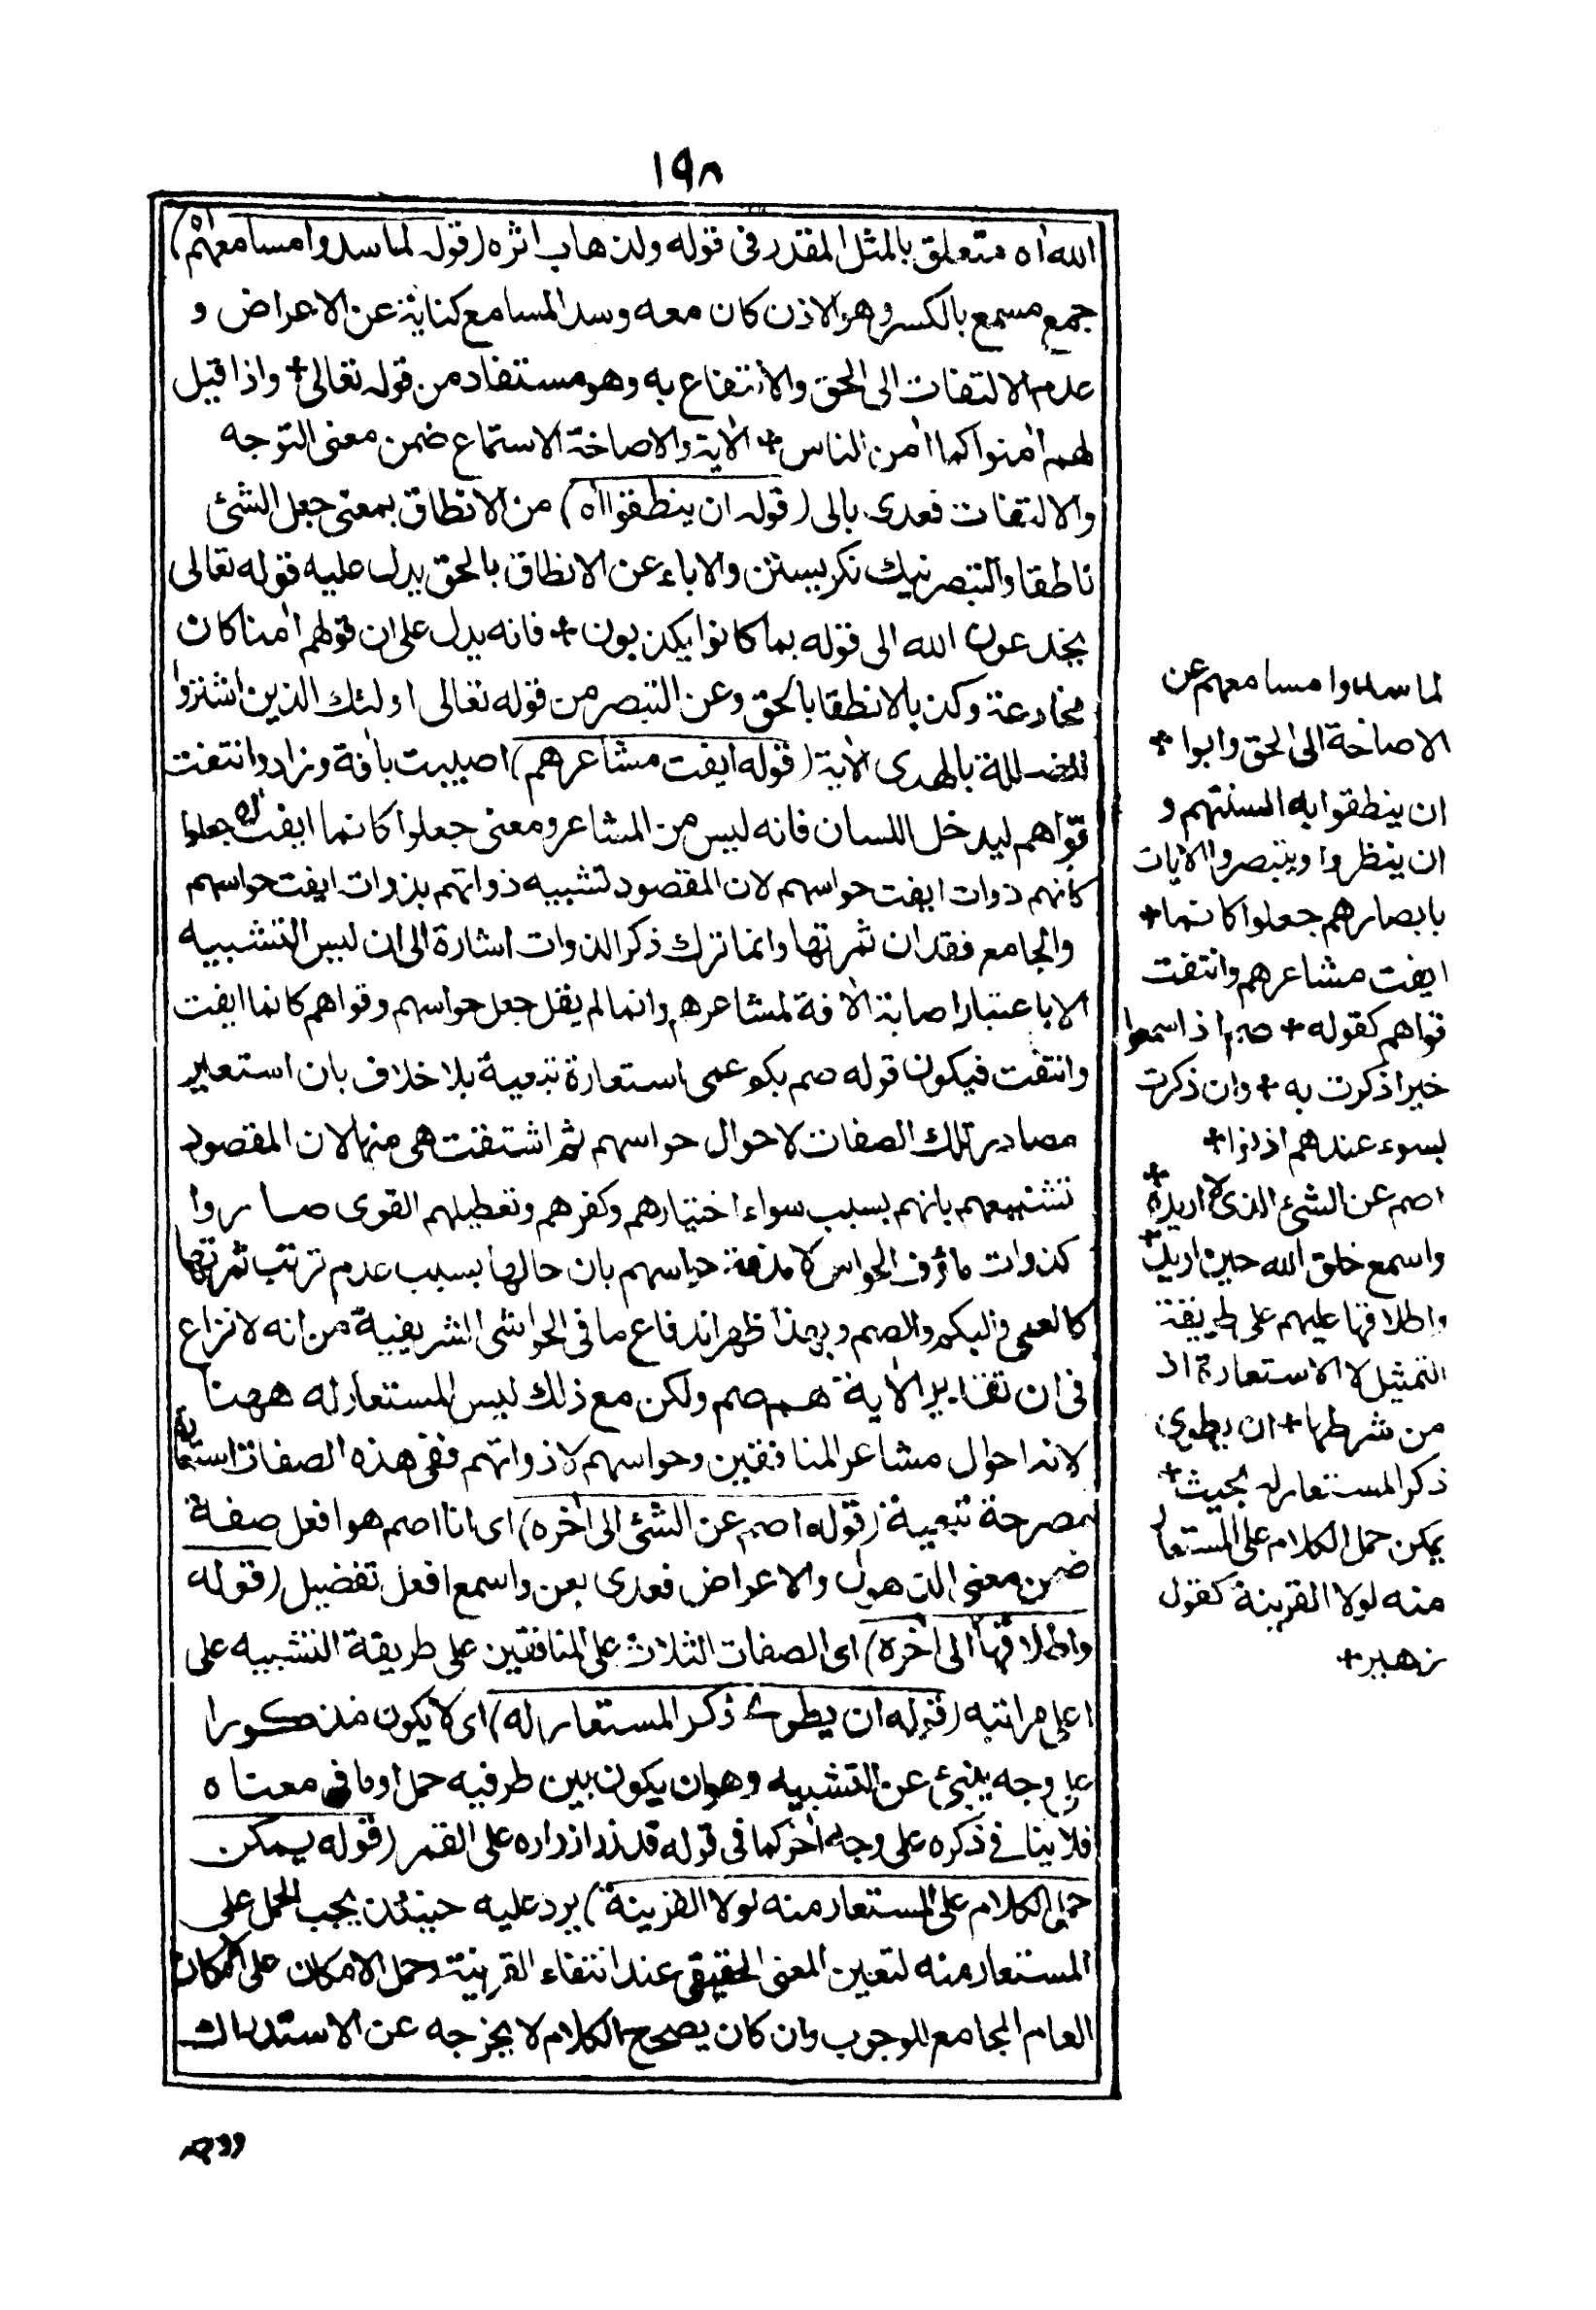 ١٩٨
الله اه متعلق بالمثل المقدر فى قوله ولذهاب اثره (قوله لما سدوا مسامعهم اه)
جمع مسمع بالكسر وهو الاذن كان معه وسد المسامع كناية عن الاعراض و
عدم الالتفات الى الحق والانتفاع به وهو مستفاد من قوله تعالى + واذا قيل
لهم اٰمنوا كما اٰمن الناس + الاٰية والاصاخة الاستماع ضمن معنى التوجه
والالتفات فعدى بالى (قوله ان ينطقوا اه) من الانطاق بمعنى جعل الشئ
ناطقا والتبصر نيك نكريستن والاباء عن الانطاق بالحق يدل عليه قوله تعالى
يخدعون الله الى قوله بما كانوا يكذبون + فانه يدل على ان قولهم اٰمنا كان
مخادعة وكذبا لا نطقا بالحق وعن التبصر من قوله تعالى اولئك الذين اشتروا
الضللة بالهدى الاٰية (قوله ايفت مشاعرهم) اصيبت باٰفة وزاد وانتفت
قواهم ليدخل اللسان فانه ليس من المشاعر ومعنى جعلوا كانما ايفت اه جعلوا
كانهم ذوات ايفت حواسهم لان المقصود تشبيه ذواتهم بذوات ايفت حواسهم
والجامع فقدان ثمرتها وانما ترك ذكر الذوات اشارة الى ان ليس التشبيه
الا باعتبار اصابة الاٰفة لمشاعرهم وانما لم يقل جعل حواسهم وقواهم كانما ايفت
وانتفت فيكون قوله صم بكم عمى استعارة تبعية بلا خلاف بان استعير
مصادر تلك الصفات لاحوال حواسهم ثم اشتقت هى منها لان المقصود
تشنيعهم بانهم بسبب سواء اختيارهم وكفرهم وتعطيلهم القوى صاروا
كذوات مأوف الحواس لا مذمة حواسهم بان حالها بسبب عدم ترتب ثمرتها
كالعمى والبكم والصم وبهذا ظهر اندفاع ما فى الحواشى الشريفية من انه لا نزاع
فى ان تقدير الاٰية هم صم ولكن مع ذلك ليس المستعار له ههنا
لانه احوال مشاعر المنافقين وحواسهم لا ذواتهم ففى هذه الصفات استعارة
مصرحة تبعية (قوله اصم عن الشئ الى اٰخره) اى انا اصم هو افعل صفة
ضمن معنى الذهول والاعراض فعدى بعن واسمع افعل تفضيل (قوله
واطلاقها الى اٰخره) اى الصفات الثلاث على المنافقين على طريقة التشبيه على
اعلى مراتبه (قوله ان يطوى ذكر المستعار له) اى لا يكون مذكورا
على وجه ينبئ عن التشبيه وهو ان يكون بين طرفيه حمل او ما فى معناه
فلا ينافى ذكره على وجه اٰخر كما فى قوله قد زر ازراره على القمر (قوله يمكن
حمل الكلام على المستعار منه لولا القرينة) يرد عليه حينئذ يجب الحمل على
المستعار منه لتعين المعنى الحقيقى عند انتفاء القرينة وحمل الامكان على الامكان
العام المجامع للوجوب وان كان يصحح الكلام لا يخرجه عن الاستدراك
لما سدوا مسامعهم عن
الاصاخة الى الحق وابوا +
ان ينطقوا به السنتهم و
ان ينظروا ويتبصروا الاٰيات
بابصارهم جعلوا كانما +
ايفت مشاعرهم وانتفت
قواهم كقوله + صم اذا سمعوا
خيرا ذكرت به + وان ذكرت
بسوء عندهم اذنوا +
اصم عن الشئ الذى لا اريده +
واسمع خلق الله حين اريد +
واطلاقها عليهم على طريقة
التمثيل لا الاستعارة اذ
من شرطها + ان يطوى
ذكر المستعار له بحيث +
يمكن حمل الكلام على المستعار
منه لولا القرينة كقول
زهير +